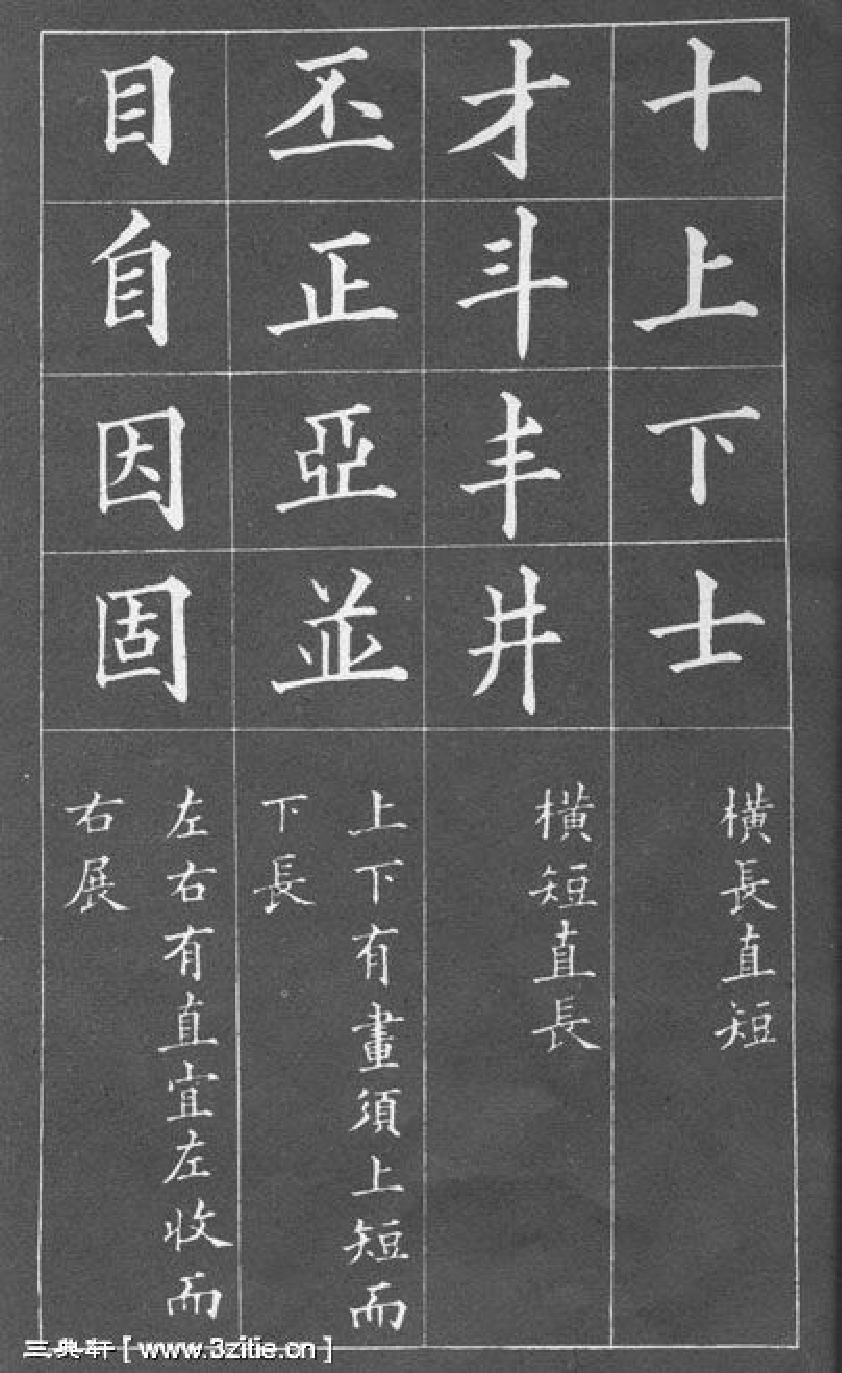 十上下士
橫長直短
才斗丰井
橫短直長
丕正亞並
上下有畫須上短而
下長
目自因固
左右有直宜左收而
右展
三典轩 [ www.3zitie.cn ]